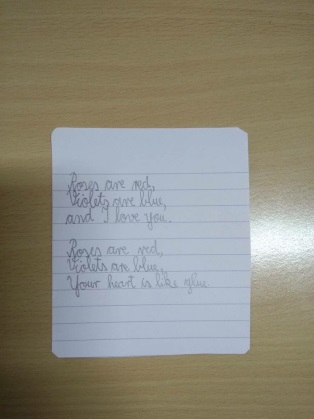 Roses are red,
Violets are blue,
and I love you.
Roses are red,
Violets are blue,
Your heart is like glue.